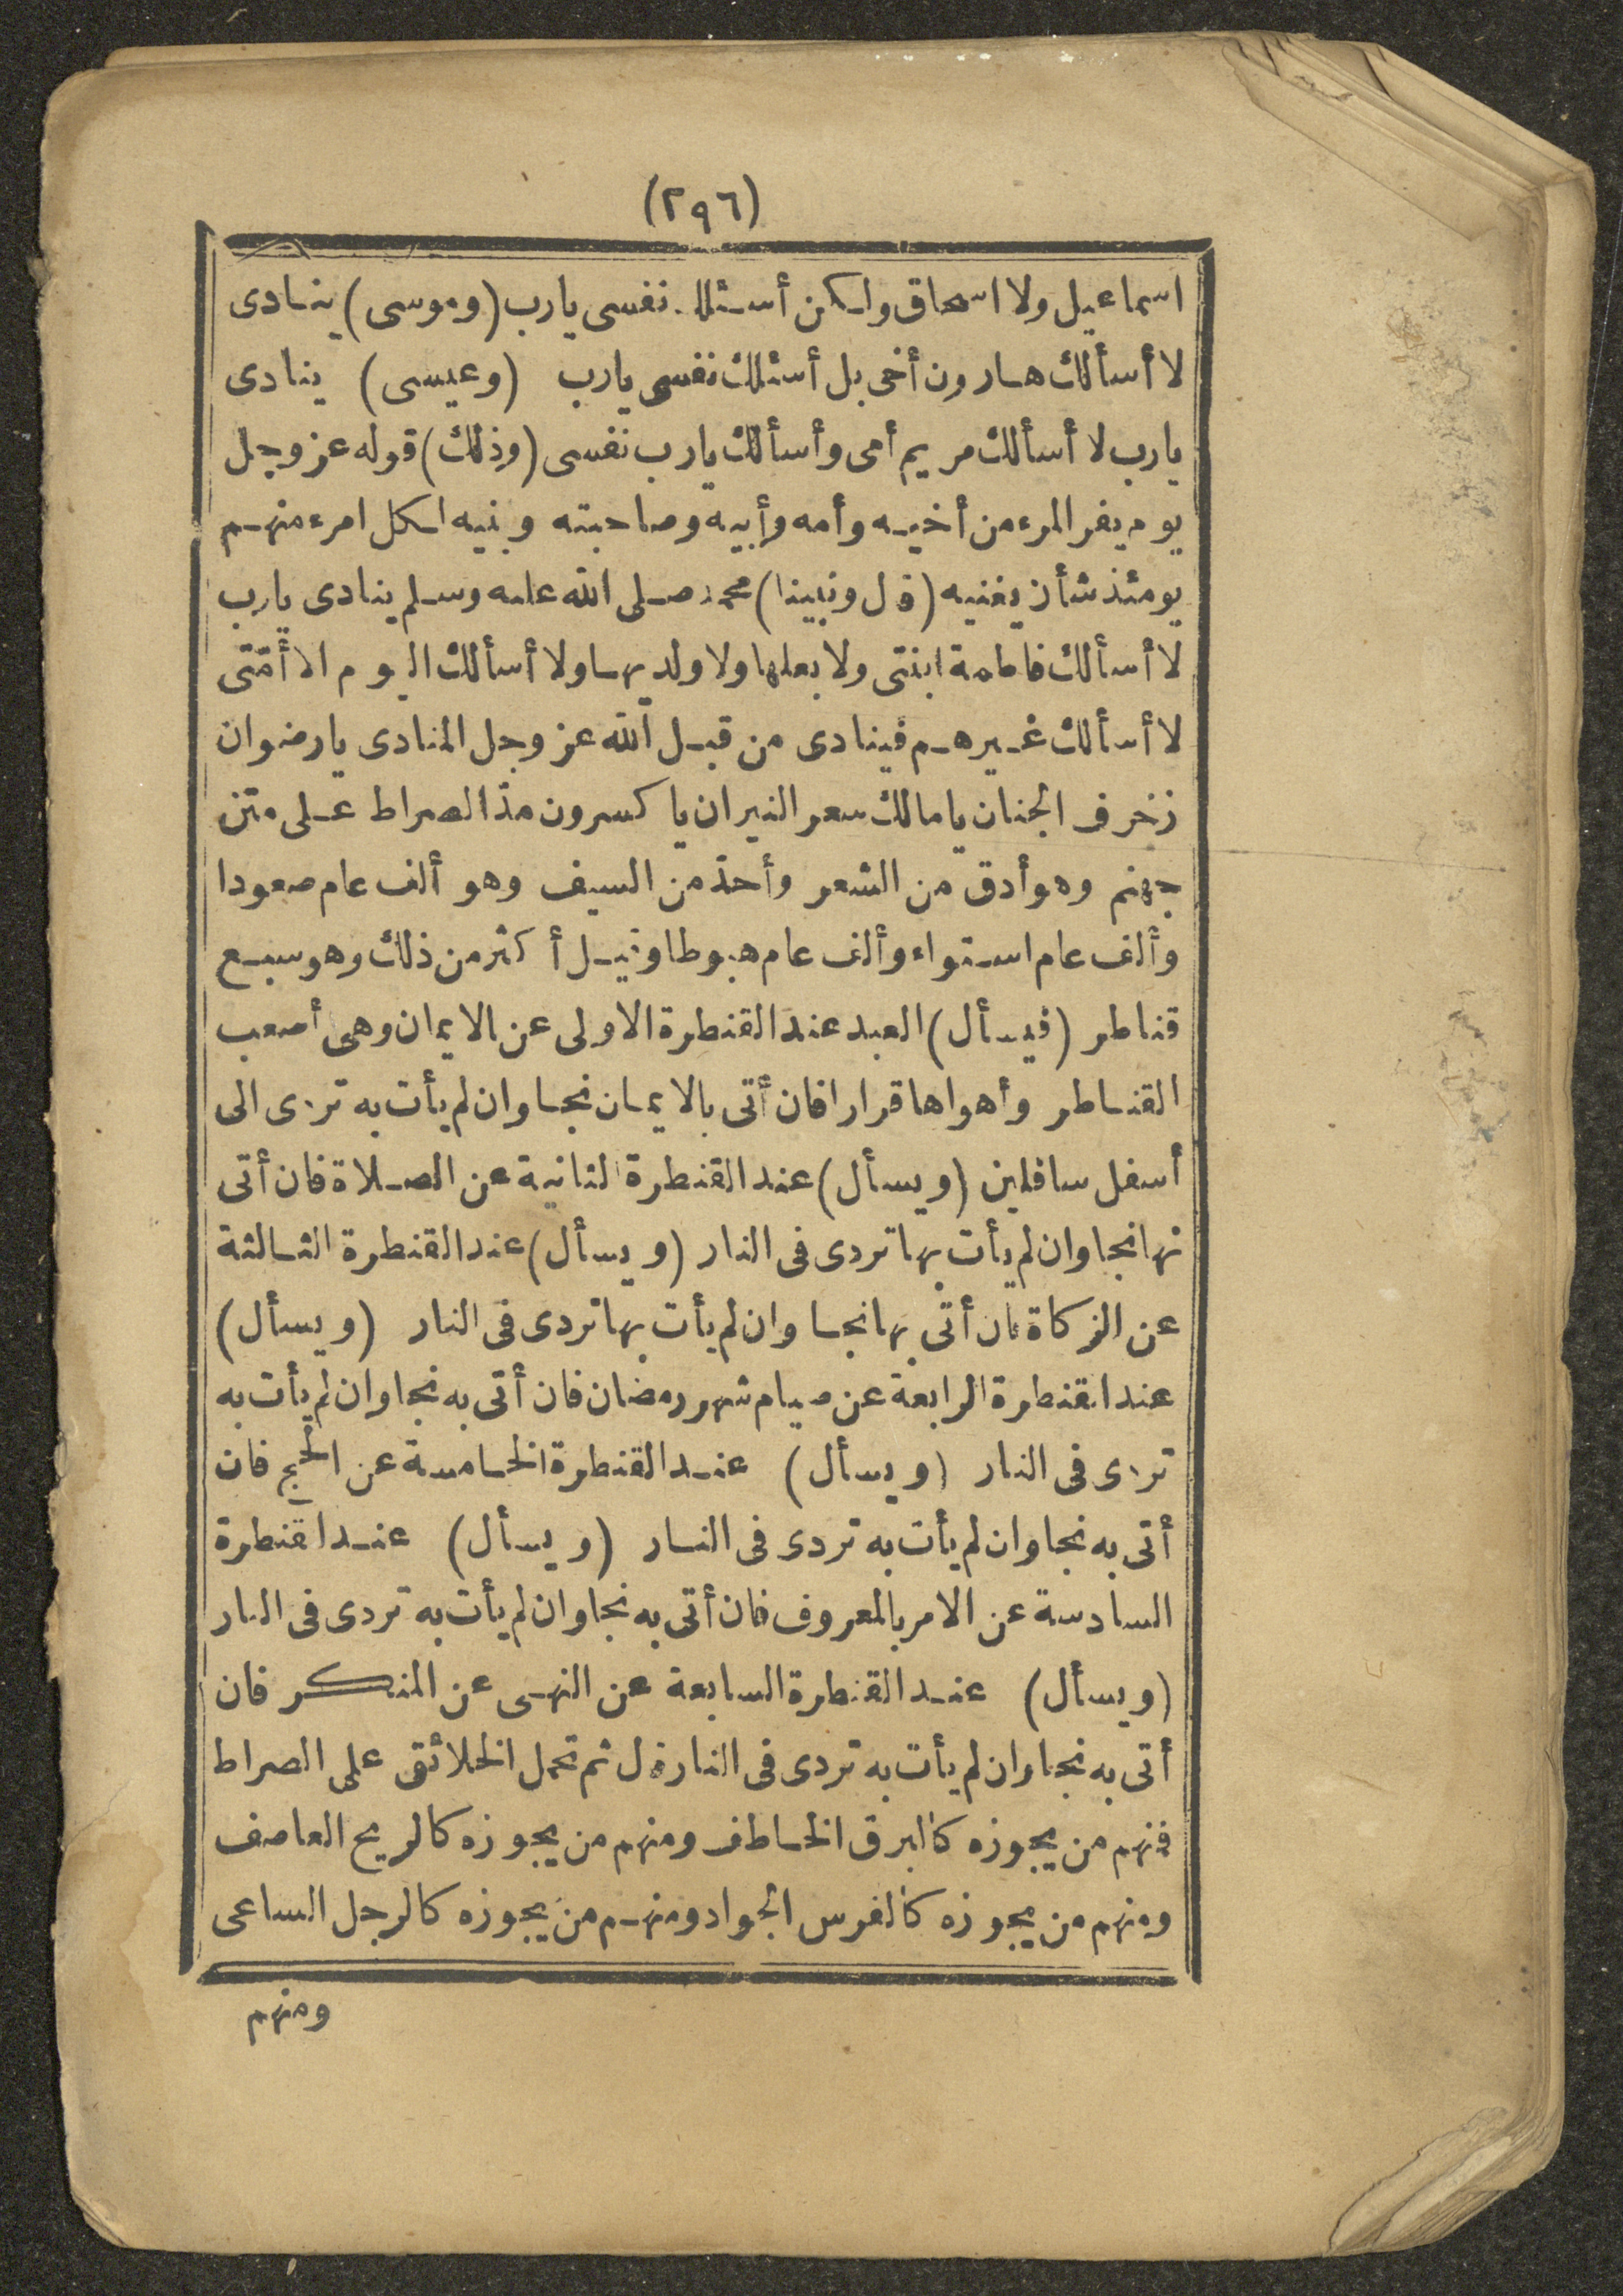 (٢٩٦)
اسماعيل ولا اسحاق ولكن أسئلك نفسى يارب (وموسى) ينادى
لا أسألك هارون أخى بل أسئلك نفسى يارب (وعيسى) ينادى
يارب لا أسألك مريم أمى وأسألك يارب نفسى (وذلك) قوله عز وجل
يوم يفر المرء من أخيه وأمه وأبيه وصاحبته وبنيه لكل امرء منهم
يومئذ شأن يغنيه (قال ونبينا) محمد صلى الله عليه وسلم ينادى يارب
لا أسألك فاطمة ابنتى ولا بعلها ولا ولديها ولا أسألك اليوم الا أمّتى
لا أسألك غيرهم فينادى من قبل الله عز وجل المنادى يارضوان
زخرف الجنان يامالك سعر النيران ياكسرون مدّ الصراط على متن
جهنم وهو أدق من الشعر وأحدّ من السيف وهو ألف عام صعودا
وألف عام استواء وألف عام هبوطا وقيل أكثر من ذلك وهو سبع
قناطر (فيسأل) العبد عند القنطرة الاولى عن الايمان وهى أصعب
القناطر وأهواها قرارا فان أتى بالايمان نجا وان لم يأت به تردى الى
أسفل سافلين (ويسأل) عند القنطرة الثانية عن الصلاة فان أتى
بها نجا وان لم يأت بها تردى فى النار (ويسأل) عند القنطرة الثالثة
عن الزكاة فان أتى بها نجا وان لم يأت بها تردى فى النار (ويسأل)
عند القنطرة الرابعة عن صيام شهر رمضان فان أتى به نجا وان لم يأت به
تردى فى النار (ويسأل) عند القنطرة الخامسة عن الحج فان
أتى به نجا وان لم يأت به تردى فى النار (ويسأل) عند القنطرة
السادسة عن الامر بالمعروف فان أتى به نجا وان لم يأت به تردى فى النار
(ويسأل) عند القنطرة السابعة عن النهى عن المنكر فان
أتى به نجا وان لم يأت به تردى فى النار قال ثم تحمل الخلائق على الصراط
فمنهم من يجوزه كالبرق الخاطف ومنهم من يجوزه كالريح العاصف
ومنهم من يجوزه كالفرس الجواد ومنهم من يجوزه كالرجل الساعى
ومنهم